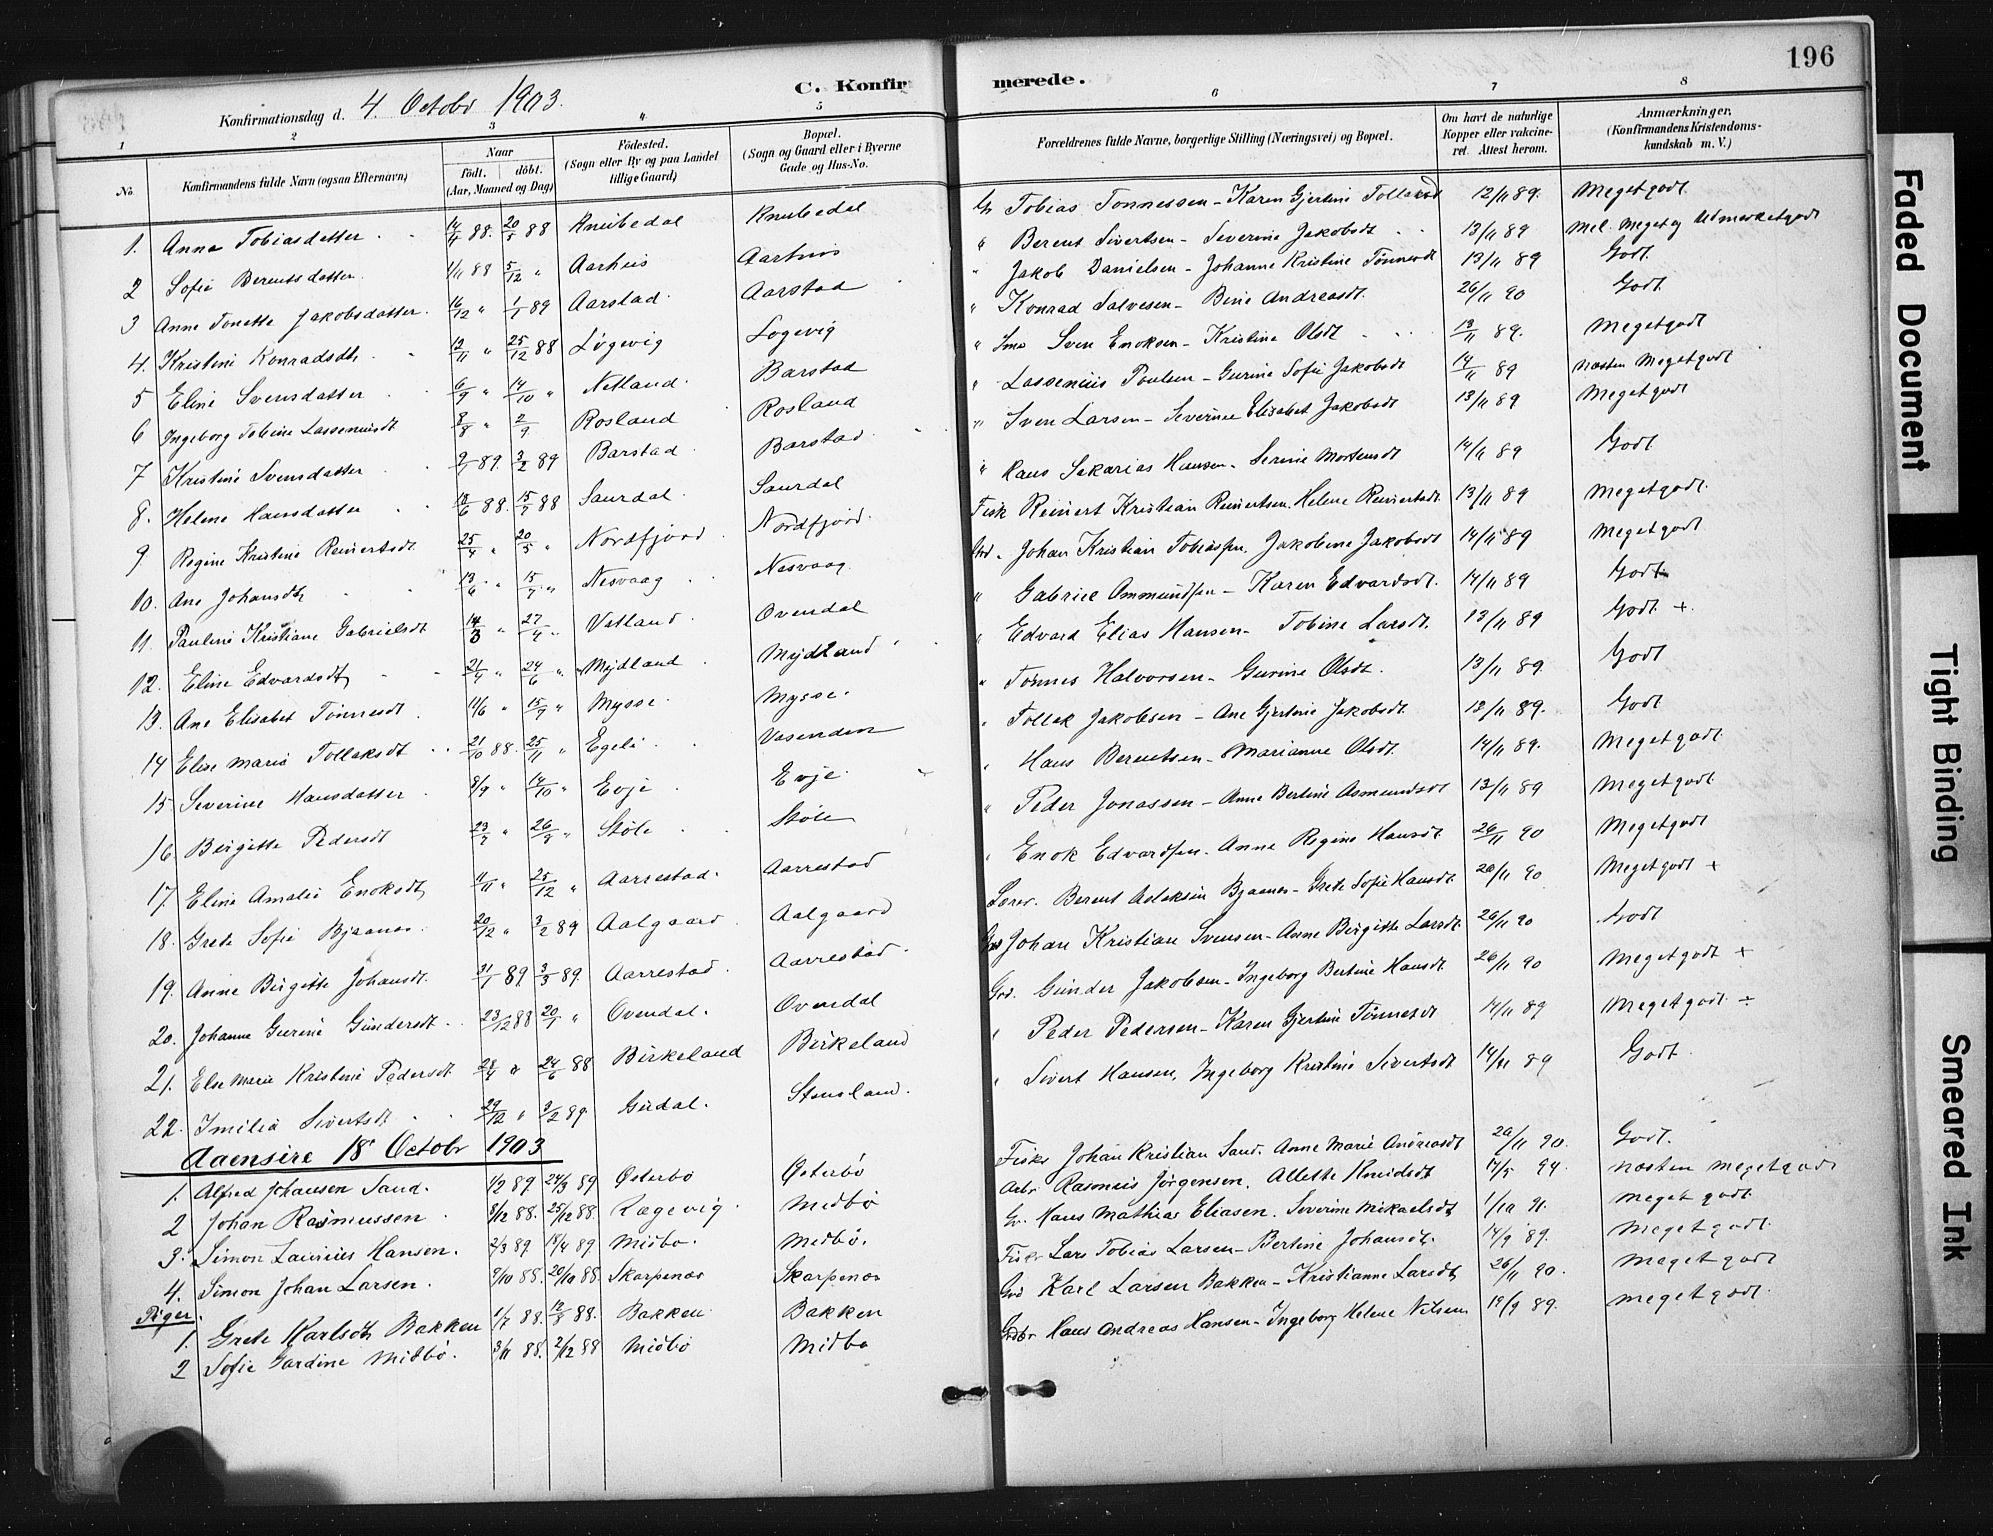 196
C. Konfirmerede.
Konfirmationsdag d. 4. Octobr 1903.
1 2 3 4 5 6 7 8
No. Konfirmandens fulde Navn (ogsaa Efternavn) Naar født. døbt. (Aar, Maaned og Dag) Fødested. (Sogn eller By og paa Landet tillige Gaard) Bopæl. (Sogn og Gaard eller i Byerne Gade og Hus-No. Forældrenes fulde Navne, borgerlige Stilling (Næringsvei) og Bopæl. Om havt de naturlige Kopper eller vakcineret. Attest herom. Anmærkninger, (Konfirmandens Kristendomskundskab m. V.)
1. Anna Tobiasdatter 14/4 88. 20/5 88 Knubedal Knubedal G Tobias Tønnessen - Karen Gjertine Tollaksd 12/11 89. Megetgodt
2 Sofie Berentsdatter 1/11 88 5/12 " Aarhus Aarhus " Berent Sivertsen - Severine Jakobsdt 13/11 89 Mel. Meget og Udmerketgodt
3 Anne Tonette Jakobsdatter. 16/12 " 1/1 89 Aarstad Aarstad " Jakob Danielsen - Johanne Kristine Tønnesdt 13/11 89 Godt
4. Kristine Konradsdtr 12/11 " 25/12 88 Løgevig Logevig " Konrad Salvesen - Bine Andreasdt. 26/11 90 Godt
5 Eline Svensdatter 6/9 " 14/10 " Netland Barstad " Sven Enoksen - Kristine Olsdt 13/11 89. Megetgodt
6 Ingeborg Tobine Lasseniusdt 8/8 " 2/9 Rosland Rosland " Lassenius Poulsen - Gurine Sofie Jakobsdt 14/11 89 næsten Megetgodt
7 Kristine Svensdatter 9/1 89. 3/2 89 Barstad Barstad " Sven Larsen - Severine Elisabet Jakobsdt 13/11 89 Megetgodt
8. Helene Hansdatter 13/6 88. 15/7 88 Saurdal Saurdal " Hans Sakarias Hansen - Serine Mortensdt 14/11 89 Godt
9 Regine Kristine Reinertsdt 25/4 " 20/5 " Nordfjord Nordfjord Fisk Reinert Kristian Reinertsen. Helene Reinertsdt. 13/11 89 Megetgodt
10. Ane Johansdtr 13/6 " 15/7 " Nesvaag Nesvaag Grd. Johan Kristian Tobiassen, Jakobine Jakobsdt 14/11 89 Megetgodt
11. Pauline Kristiane Gabrielsdt 14/3 " 27/4 " Vatland Ovendal " Gabriel Ommundsen - Karen Edvardsdt. 14/11 89 Godt
12. Eline Edvardsdt 21/4 " 24/6 " Mydland Mydland " Edvard Elias Hansen - Tobine Larsdt. 13/11 89 Godt +
13. Ane Elisabet Tønnesdt 11/6 " 15/7 " Mysse Mysse " Tønnes Halvorsen - Gurine Olsdt. 13/11 89. Godt
14 Elise Marie Tollaksdt 21/10 88. 25/11 " Egeli Vasenden " Tollak Jakobsen - Ane Gjertine Jakobsdt. 12/11 89. Godt
15. Severine Hansdatter 8/9 " 14/10 " Evje Evje " Hans Berentsen - Marianne Olsdt. 14/11 89. Megetgodt
16. Birgitte Pedersdt 23/7 " 26/8 " Støle Støle " Peder Jonassen - Anne Bertine Asmundsdt 13/11 89 Megetgodt
17. Eline Amalie Enoksdt 11/11 " 25/12 " Aarrestad. Aarrestad " Enok Edvardsen - Anne Regine Hansdt. 26/11 90 Megetgodt
18. Grete Sofie Bjaanes. 20/12 " 3/2 89 Aalgaard Aalgaard Lærer. Berent Aslaksen Bjaanes - Grete Sofie Hansdt 20/11 90 Megetgodt +
19. Anne Birgitte Johansdt. 31/1 89 3/3 89. Aarrestad Aarrestad. Grd Johan Kristian Svensen - Anne Birgitte Larsdt 26/11 90 Godt
20. Johanne Gurine Gundersdt 23/12 88 20/1 " Ovendal. Ovendal Grd. Gunder Jakobsen - Ingeborg Bertine Hansdt 26/11 90 Megetgodt +
21. Else Marie Kristine Pedersdt 28/4 " 24/6 88 Birkeland Birkeland " Peder Pedersen - Karen Gjertine Tønnesdt 14/11 89 Megetgodt ÷
22. Imilie Sivertsdt 29/12 " 3/2 89. Gudal. Stensland. " Sivert Hansen, Ingeborg Kristine Sivertsdt 14/11 89 Godt
Aaensire 18 Octobr 1903
1. Alfred Johansen Sand. 1/2 89 24/3 89 Østerbø Østerbø Fisker Johan Kristian Sand. Anne Marie Andreasdt 20/11 90. Godt.
2 Johan Rasmussen 8/12 88. 25/12 88. Rægevig Medbø Arbr. Rasmus Jörgensen. Allette Knudsdt 17/5 94. næsten megetgodt
3. Simon Launius Hansen. 2/3 89 18/4 89 Midbø. Medbø. Gr. Hans Mathias Eliasen. Severine Mikaelsdt 1/10 91. meget godt
4. Simon Johan Larsen. 9/10 88. 20/10 88. Skarpenæs Skarpenæs Fisker Lars Tobias Larsen - Bertine Johansdt. 14/9 89. megetgodt
Piger.
1. Grete Karlsdtr Bakken 1/7 88. 12/8 88. Bakken Bakken Grd Karl Larsen Bakken - Kristianne Larsdt 26/11 90. megetgodt
2 Sofie Gardine Midbø. 3/11 88. 2/12 88 Midbø Midbø Grdbr Hans Andreas Hansen - Ingeborg Helene Nilsen 19/9 89. megetgodt
Faded Document
Tight Binding
Smeared Ink